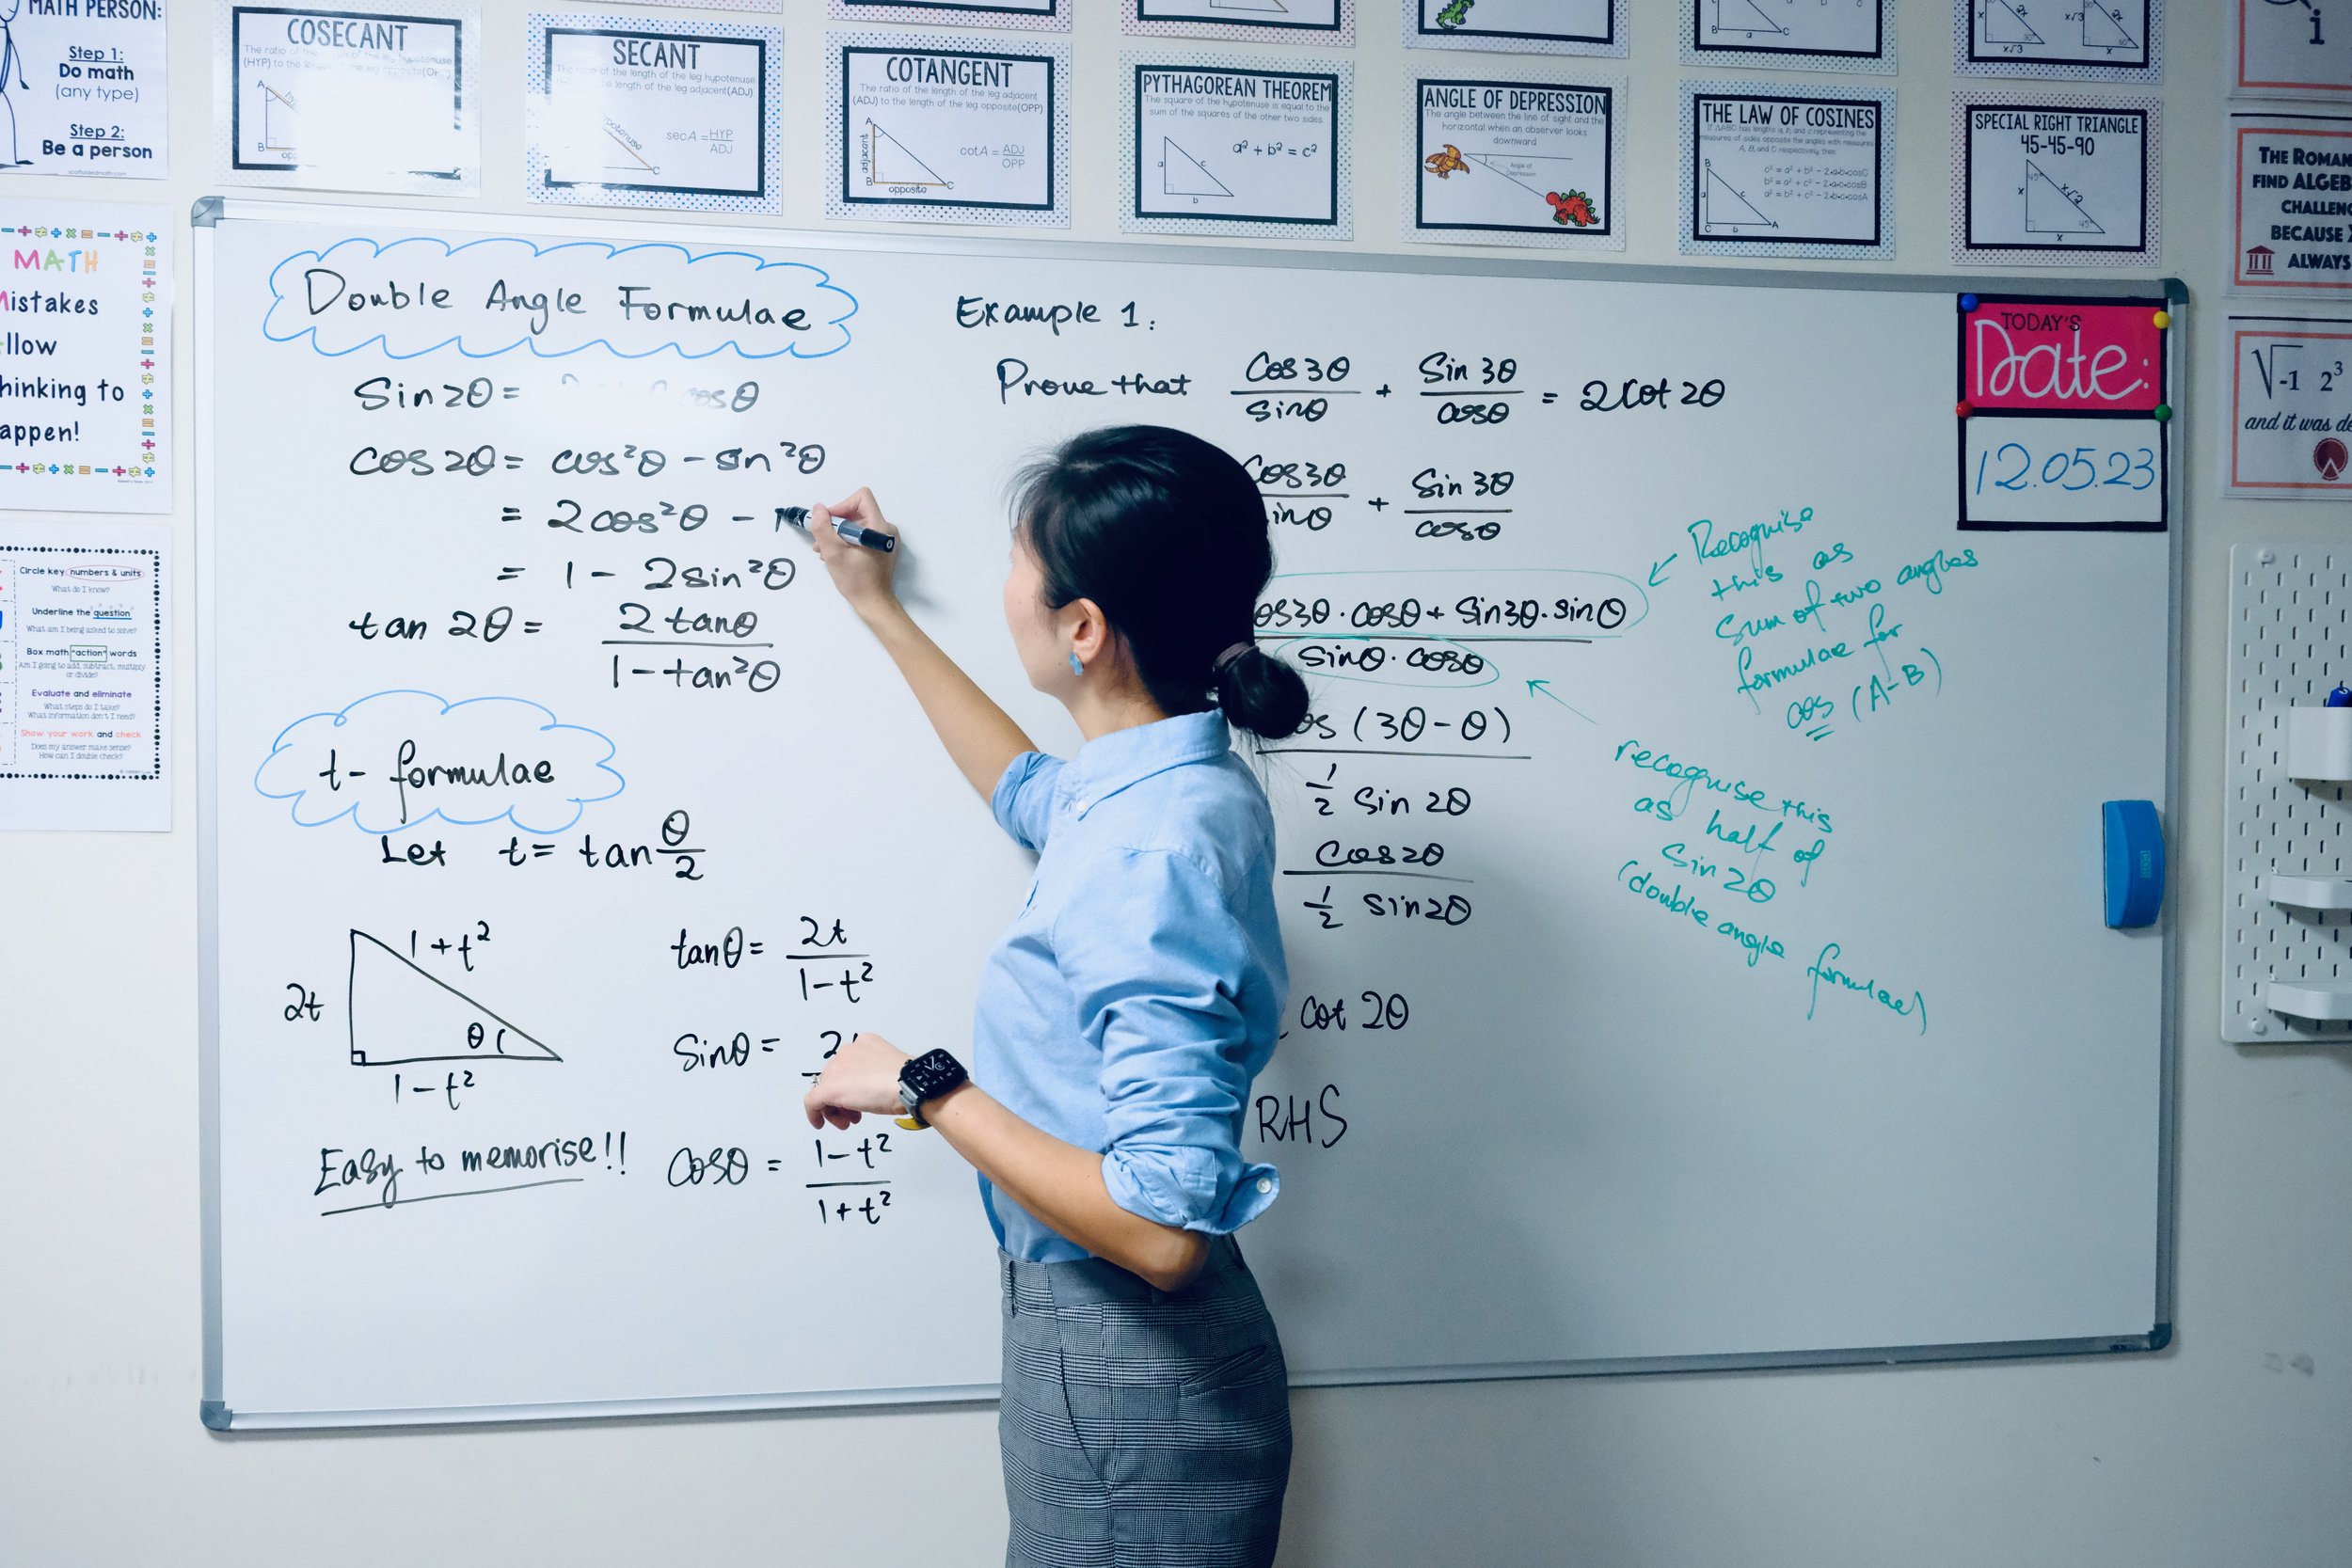 MATH PERSON:
Step 1:
Do math
(any type)
Step 2:
Be a person
COSECANT
The ratio of the
(HYP) to the
A
B
SECANT
of the length of the leg hypotenuse
length of the leg adjacent(ADJ)
secA = HYP
ADJ
C
COTANGENT
The ratio of the length of the leg adjacent
(ADJ) to the length of the leg opposite(OPP)
A
adjacent
cotA = ADJ
OPP
B
C
opposite
PYTHAGOREAN THEOREM
The square of the hypotenuse is equal to the
sum of the squares of the other two sides
a² + b² = c²
a
c
b
ANGLE OF DEPRESSION
The angle between the line of sight and the
horizontal when an observer looks
downward
Angle of
Depression
THE LAW OF COSINES
c² = a² + b² - 2·a·b·cosC
b² = a² + c² - 2·a·c·cosB
a² = b² + c² - 2·b·c·cosA
B
a
c
C
b
A
SPECIAL RIGHT TRIANGLE
45-45-90
45°
x
x√2
45°
x
i
THE ROMAN
FIND ALGEB
CHALLENG
BECAUSE X
ALWAYS
√-1 2³
and it was de
MATH
Mistakes
llow
hinking to
appen!
Circle key numbers & units
What do I know?
Underline the question
What am I being asked to solve?
Box math "action" words
Am I going to add, subtract, multiply
or divide?
Evaluate and eliminate
What steps do I take?
What information don't I need?
Show your work and check
Does my answer make sense?
How can I double check?
Double Angle Formulae
Sin2θ = cosθ
cos2θ = cos²θ - sin²θ
= 2cos²θ - 1
= 1 - 2sin²θ
tan 2θ = 2 tanθ
1 - tan²θ
t- formulae
Let t = tan θ
2
1+t²
2t
θ
1-t²
Easy to memorise!!
tanθ = 2t
1-t²
Sinθ = 2
Cosθ = 1-t²
1+t²
Example 1:
Prove that Cos3θ + Sin 3θ = 2Cot 2θ
sinθ cosθ
cos3θ + Sin 3θ
inθ cosθ
os3θ · cosθ + Sin3θ · sinθ
sinθ · cosθ
os (3θ - θ)
1/2 Sin 2θ
Cos2θ
1/2 Sin2θ
cot 2θ
RHS
Recognise
this as
sum of two angles
formulae for
cos (A-B)
recognise this
as half of
Sin 2θ
(double angle formulae)
TODAY'S
Date:
12.05.23